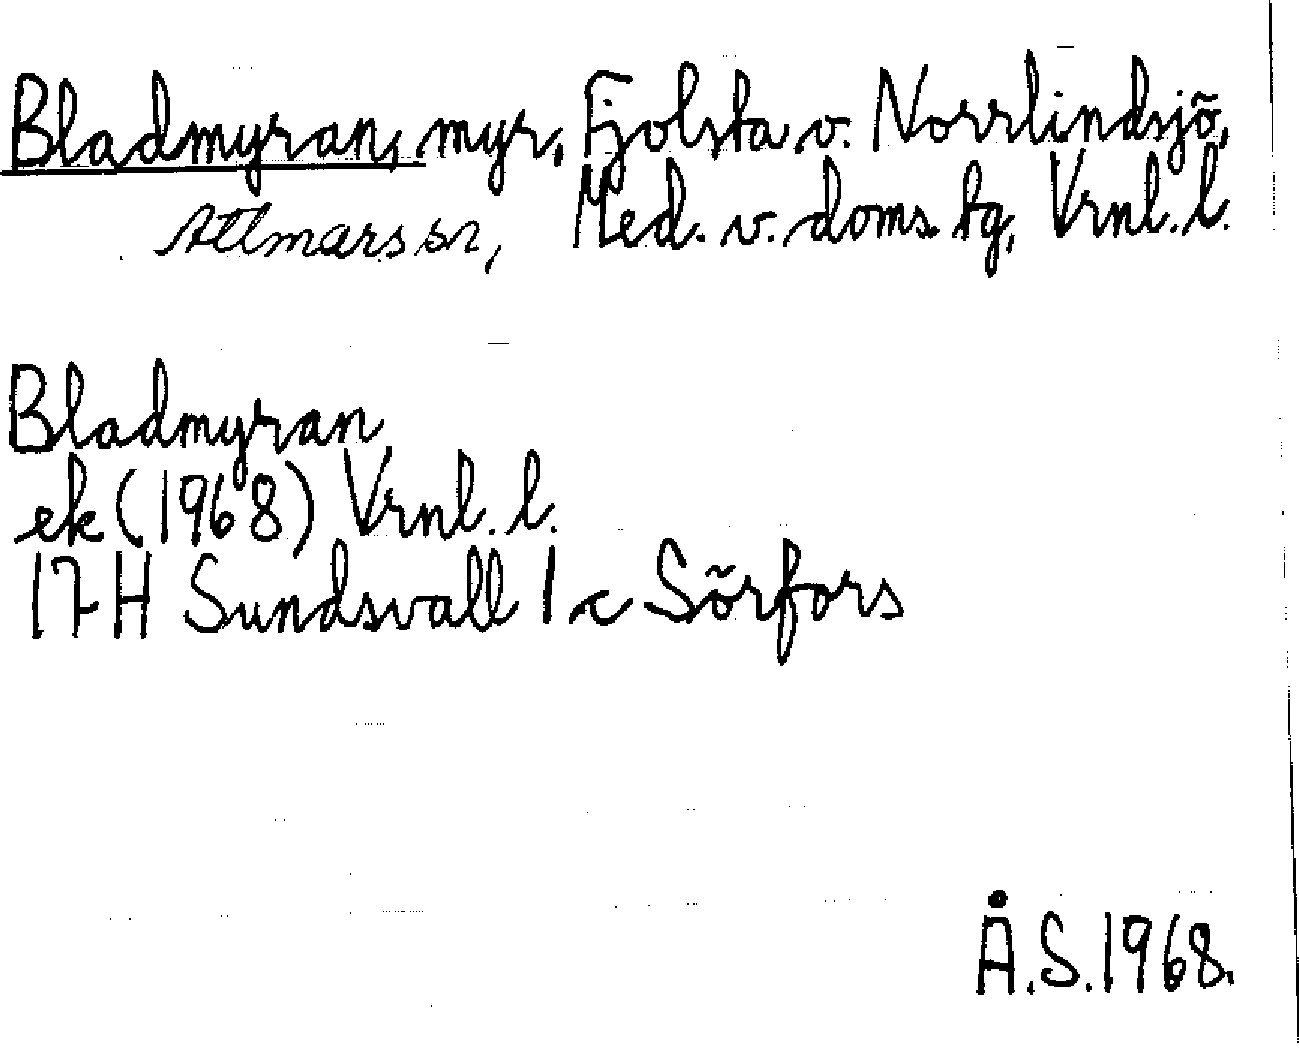 Bladmyran, myr, Fjolsta o. Norrlindsjö,
Attmars sn, Med. v. doms. tg, Vrnl. l.
Bladmyran
ek (1968) Vrnl. l.
17H Sundsvall 1 c Sörfors
Å.S. 1968.